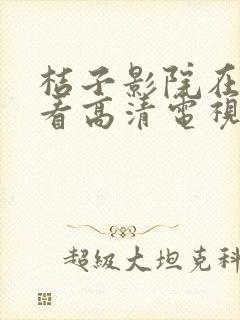 桔子影院在
看高清電視
超級大坦克科